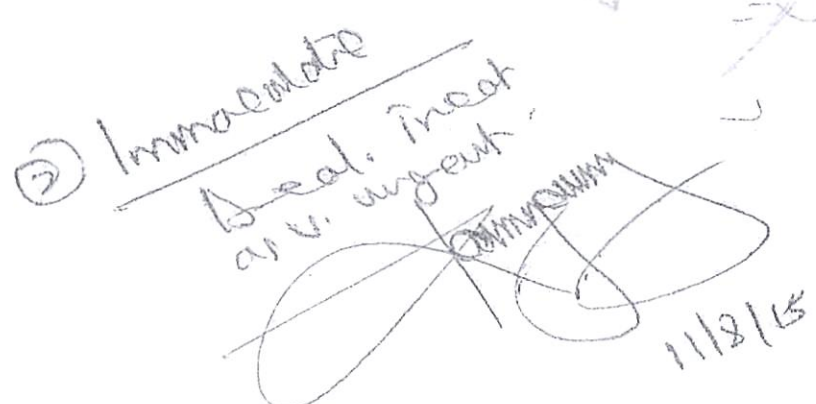 ② Immediate
Deal. Treat
as v. urgent.
11/8/15